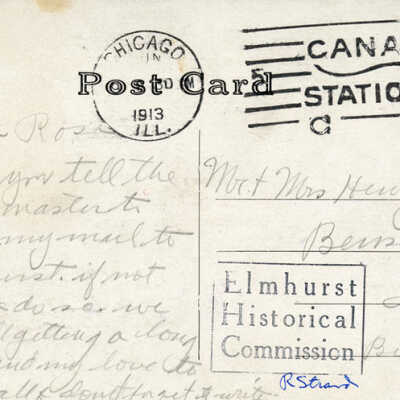 CHICAGO
1913
ILL.
CANA
STATIO
C
Post Card
Rosa
you tell the
master to
my mail to
hurst. if not
do so. we
getting a long
and my love to
all don't forget to write
Mr. & Mrs Henry
Bens
Elmhurst
Historical
Commission
R Strand